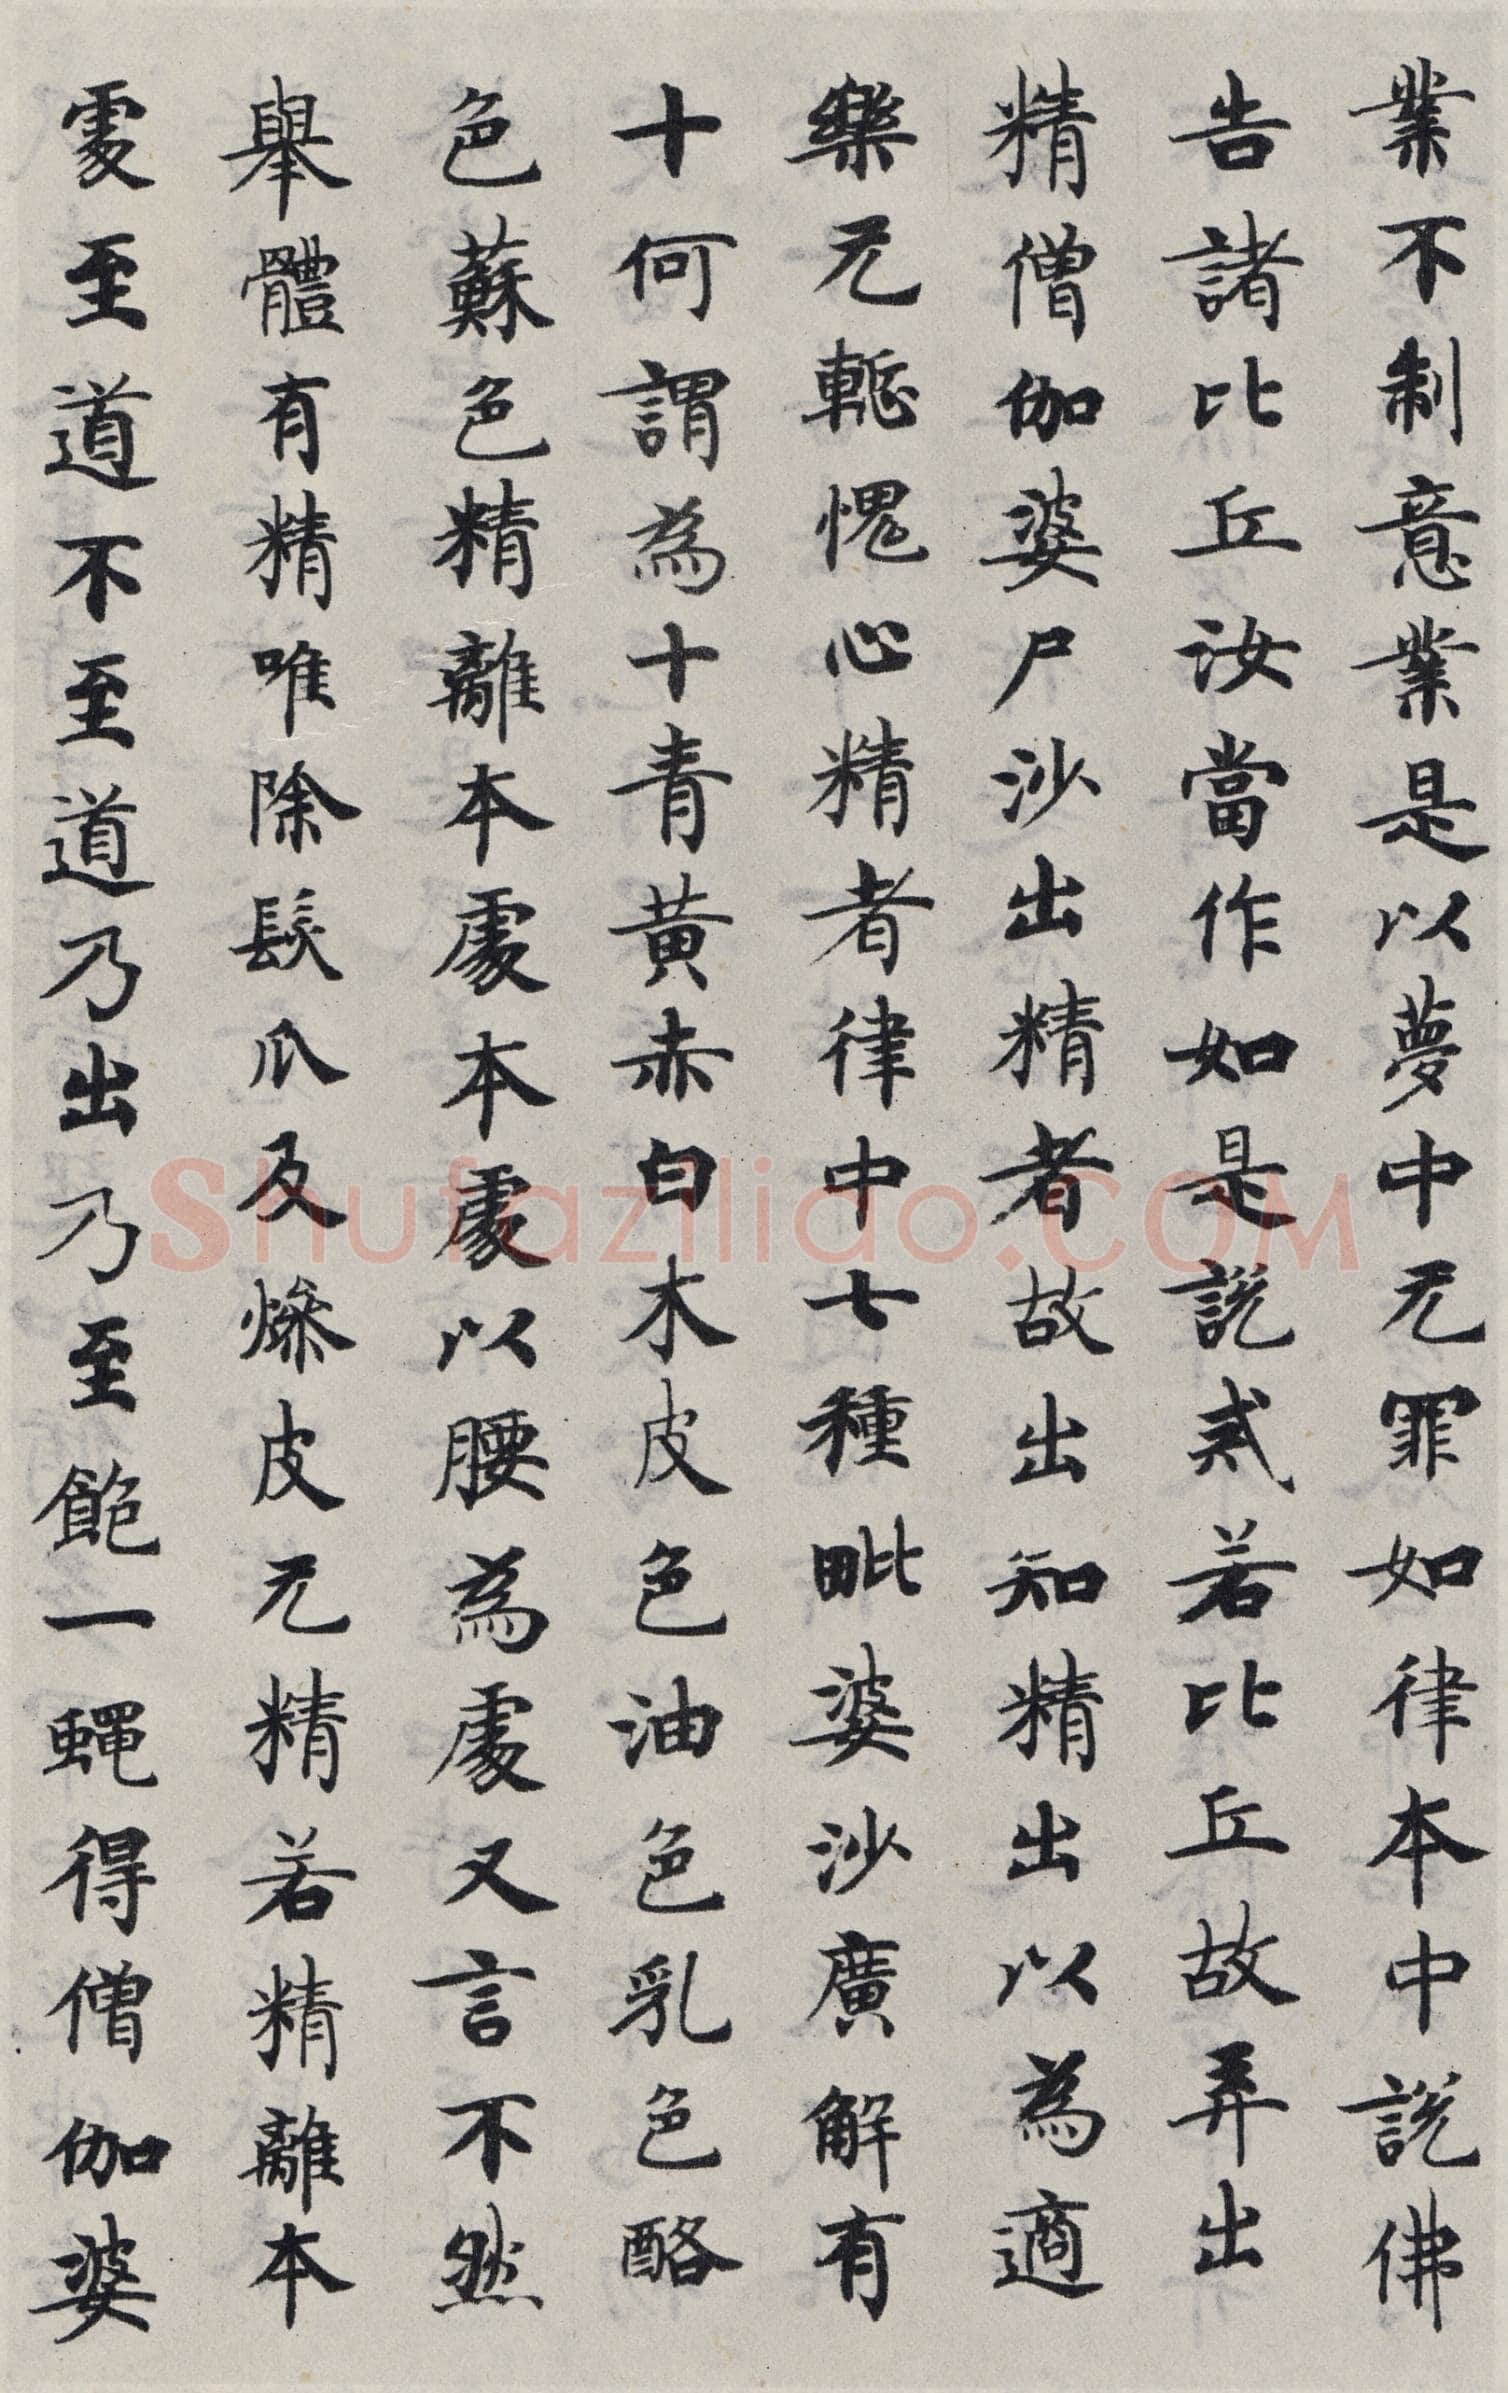 業不制意業是以夢中无罪如律本中説佛
告諸比丘汝當作如是説戒若比丘故弄出
精僧伽婆尸沙出精者故出知精出以為適
樂无慙愧心精者律中七種毗婆沙廣解有
十何謂為十青黃赤白木皮色油色乳色酪
色蘇色精離本處本處以腰為處又言不然
舉體有精唯除髮爪及燥皮无精若精離本
處至道不至道乃出乃至飽一蠅得僧伽婆
shufaziliao.COM